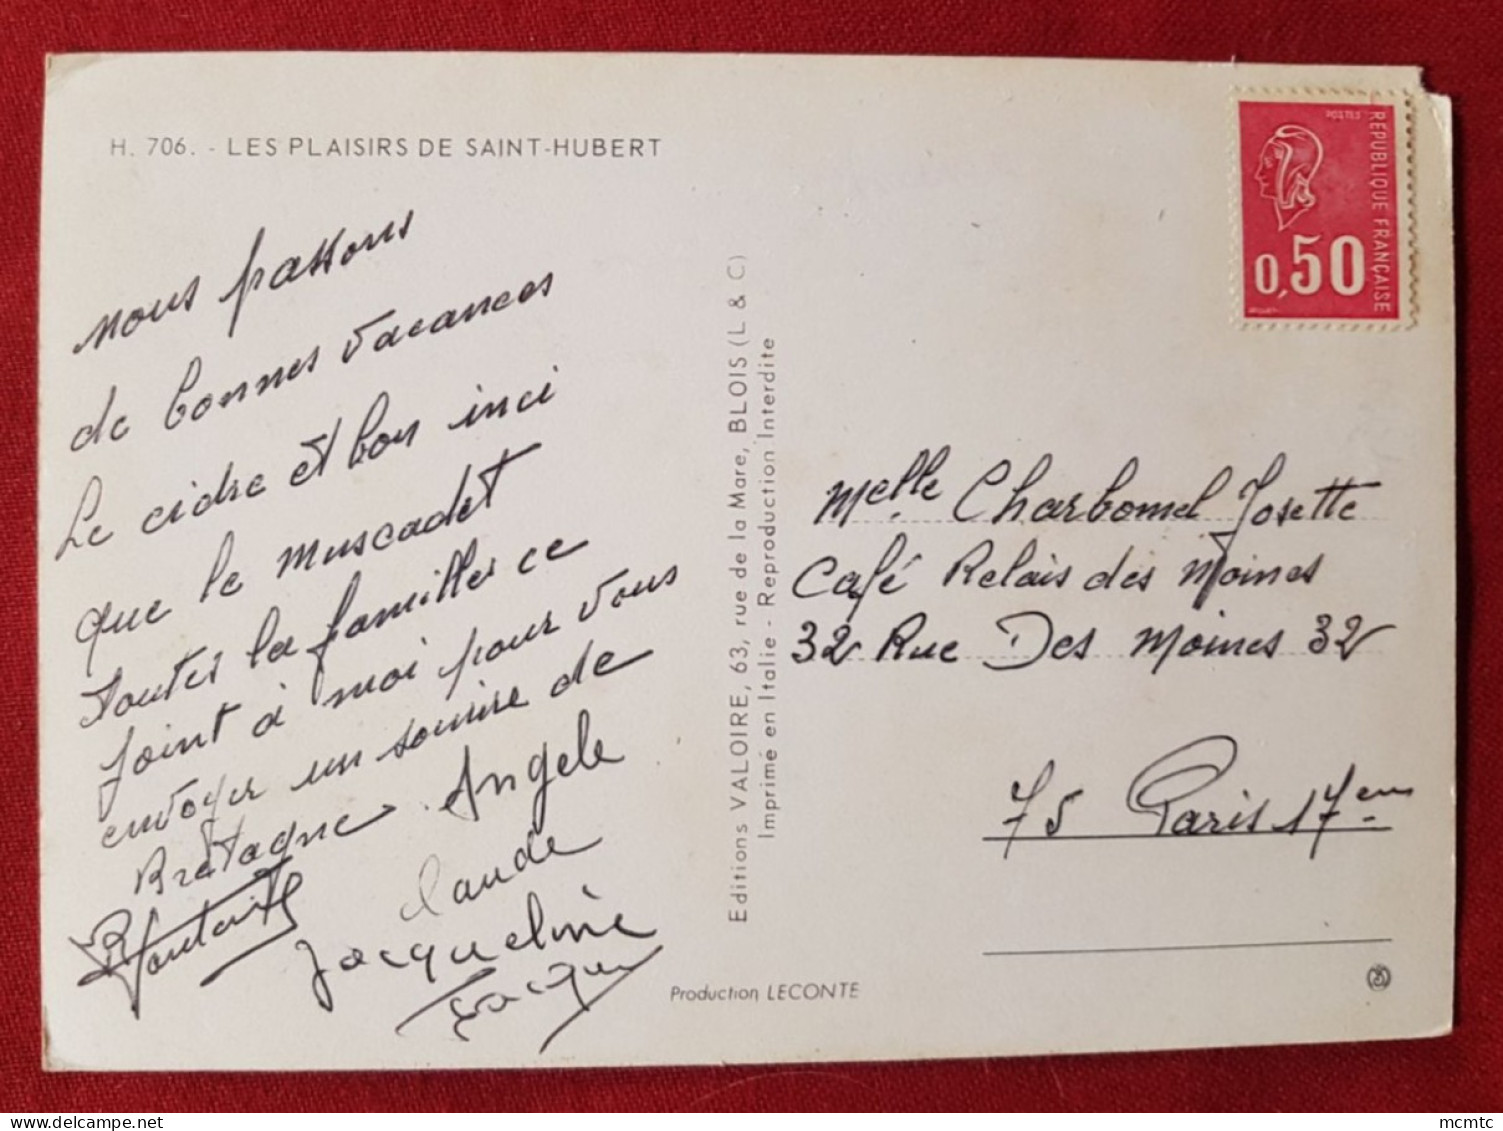 H. 706. - LES PLAISIRS DE SAINT-HUBERT
nous passons
de bonnes vacances
Le cidre et bon inci
que le muscadet
toutes la familles ce
joint à moi pour vous
envoyer un sourire de
Bretagne. Angele
Claude
Jacqueline
Jacques
Editions VALOIRE, 63, rue de la Mare, BLOIS (L & C)
Imprimé en Italie - Reproduction Interdite
Production LECONTE
POSTES
REPUBLIQUE FRANÇAISE
0,50
Melle Charbonnel Josette
Café Relais des Moines
32 Rue Des Moines 32
75 Paris 17em
mcmtc